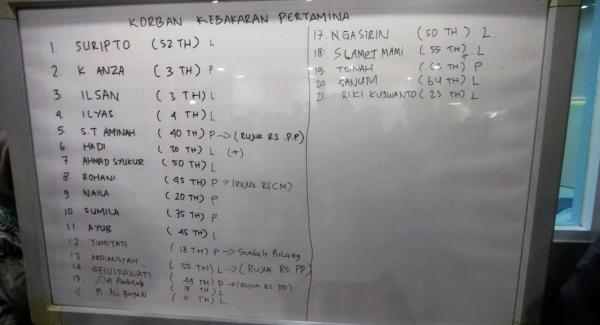 KORBAN KEBAKARAN PERTAMINA
1. SURIPTO (52 TH) L
2. K ANZA (3 TH) P
3. ILSAN (3 TH) L
4. ILYAS (4 TH) L
5. S.T AMINAH (40 TH) P → (RUJUK RS .P.P)
6. HADI (30 TH) L (+)
7 AHMAD SYUKUR (50 TH) L
8. ROHANI (45 TH) P → (RUJUK RSCM)
9 NAILA (20 TH) P
10 SUMILA (75 TH) P
11. AYUB (45 TH) L
12 YUMIYATI (18 TH) P → Sudah Pulang
13 ARDIANSYAH (50 TH) L → (RUJUK RS. PP)
14 (49 TH) P → (RUJUK RS PP)
15. (18 TH) L
M. Ali (11 TH) L.
17. NGASIRIN (50 TH) L.
18. SLAMET MAMI (55 TH) L
19. P
20 SANUM (64 TH) L
21 RIKI KUSWANTO (23 TH) L